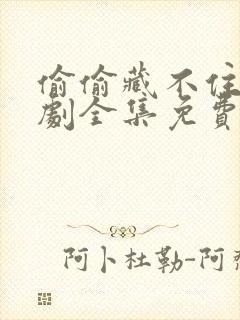 偷偷藏不住
劇全集免費
阿卜杜勒-阿